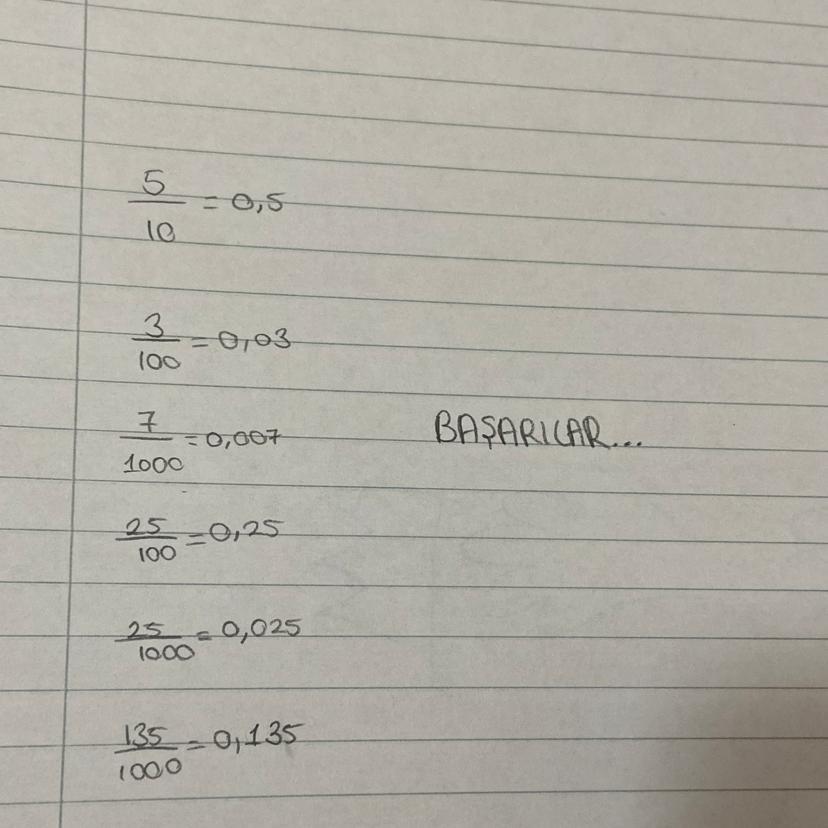 5/10 = 0,5
3/100 = 0,03
7/1000 = 0,007
BAŞARILAR...
25/100 = 0,25
25/1000 = 0,025
135/1000 = 0,135